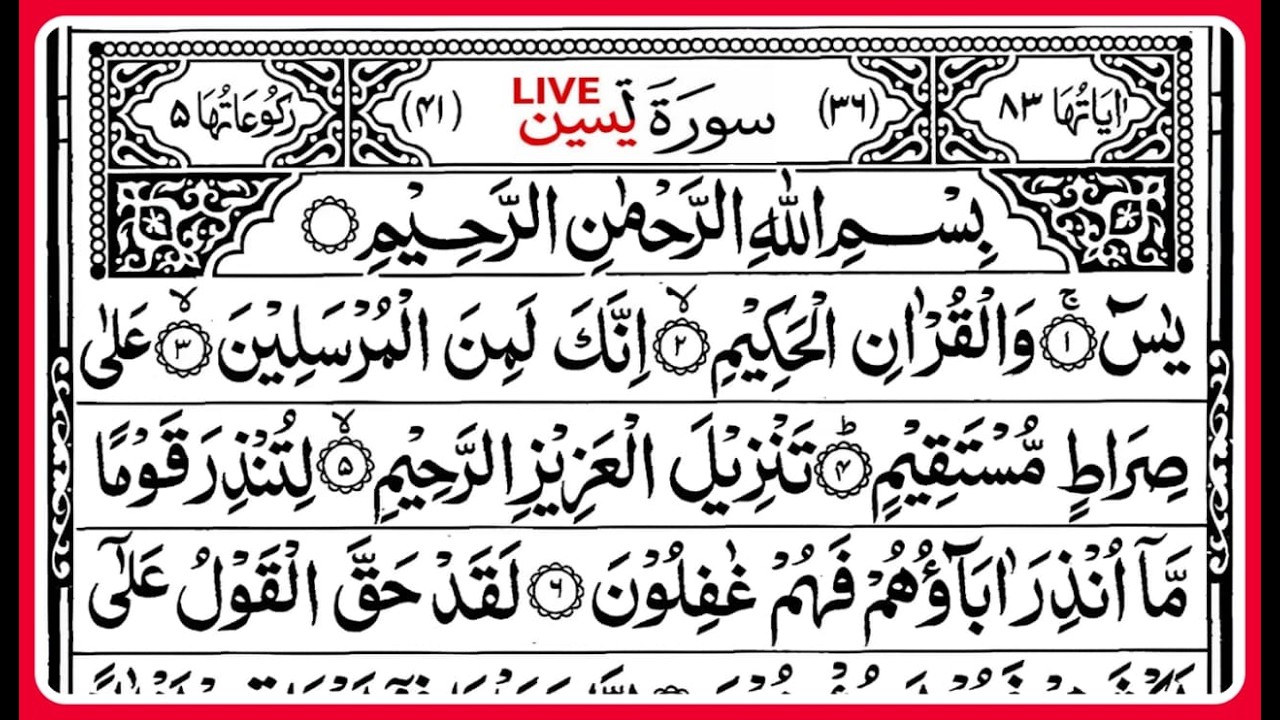 اٰیَاتُهَا ۸۳ (۳۶) سورة یٰسین LIVE (۴۱) رکُوعَاتُهَا ۵
بِسْمِ اللّٰهِ الرَّحْمٰنِ الرَّحِیْمِ
یٰسٓ ۚ﴿۱﴾ وَالْقُرْاٰنِ الْحَكِیْمِ ۙ﴿۲﴾ اِنَّكَ لَمِنَ الْمُرْسَلِیْنَ ۙ﴿۳﴾ عَلٰی
صِرَاطٍ مُّسْتَقِیْمٍ ؕ﴿۴﴾ تَنْزِیْلَ الْعَزِیْزِ الرَّحِیْمِ ۙ﴿۵﴾ لِتُنْذِرَ قَوْمًا
مَّاۤ اُنْذِرَ اٰبَآؤُهُمْ فَهُمْ غٰفِلُوْنَ ﴿۶﴾ لَقَدْ حَقَّ الْقَوْلُ عَلٰۤی